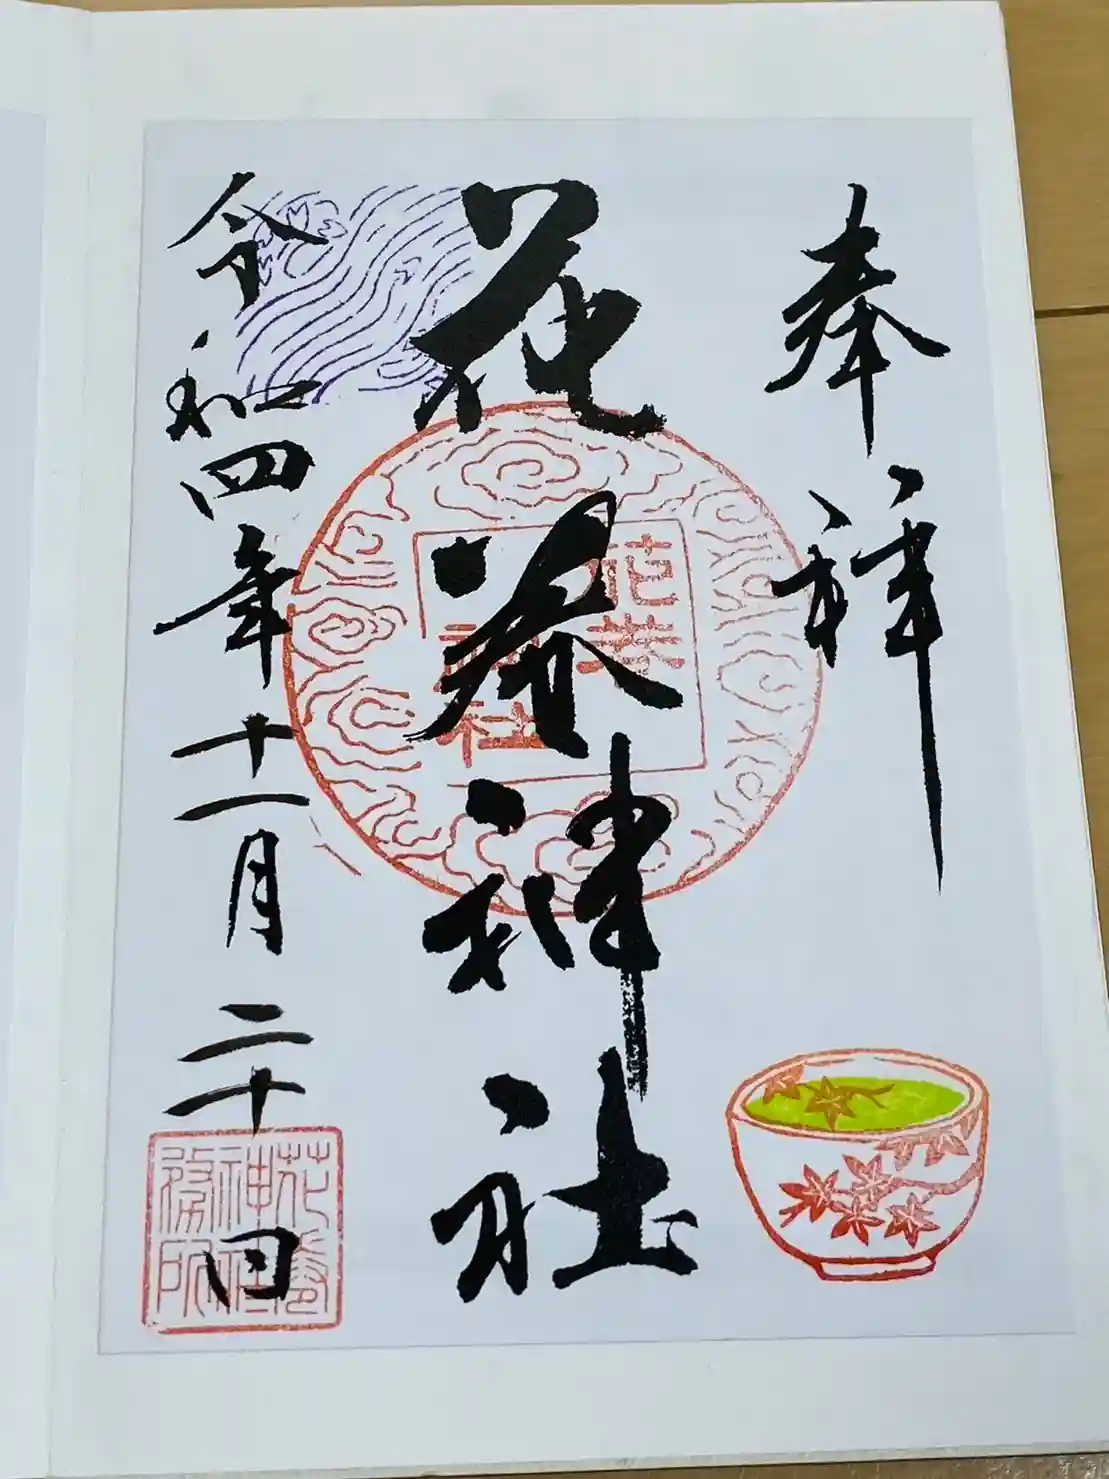 奉拝
花巻神社
令和四年十一月二十日
花巻
神社
花巻
神社
務所